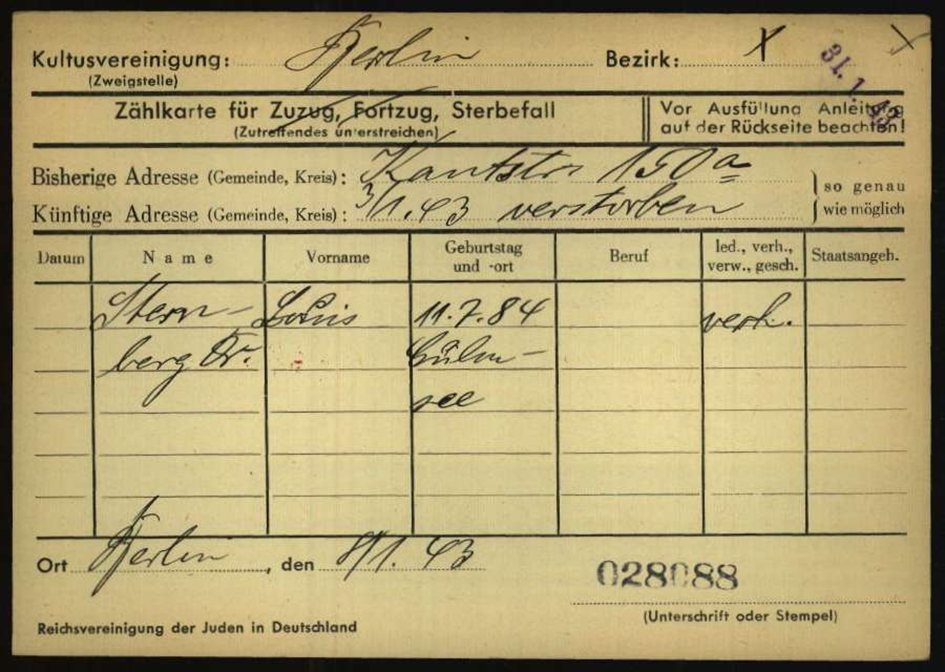 Kultusvereinigung: Berlin Bezirk: X X
(Zweigstelle)
31. 1. 43
Zählkarte für Zuzug, Fortzug, Sterbefall
(Zutreffendes unterstreichen)
Vor Ausfüllung Anleitung
auf der Rückseite beachten!
Bisherige Adresse (Gemeinde, Kreis): Kantstr. 150a
Künftige Adresse (Gemeinde, Kreis): 3/1.43 verstorben
so genau
wie möglich
Datum Name Vorname Geburtstag und -ort Beruf led., verh., verw., gesch. Staatsangeh.
Stern- Louis 11.7.84 verh.
berg Dr. Culm-
see
Ort Berlin, den 8/1. 43
028088
(Unterschrift oder Stempel)
Reichsvereinigung der Juden in Deutschland